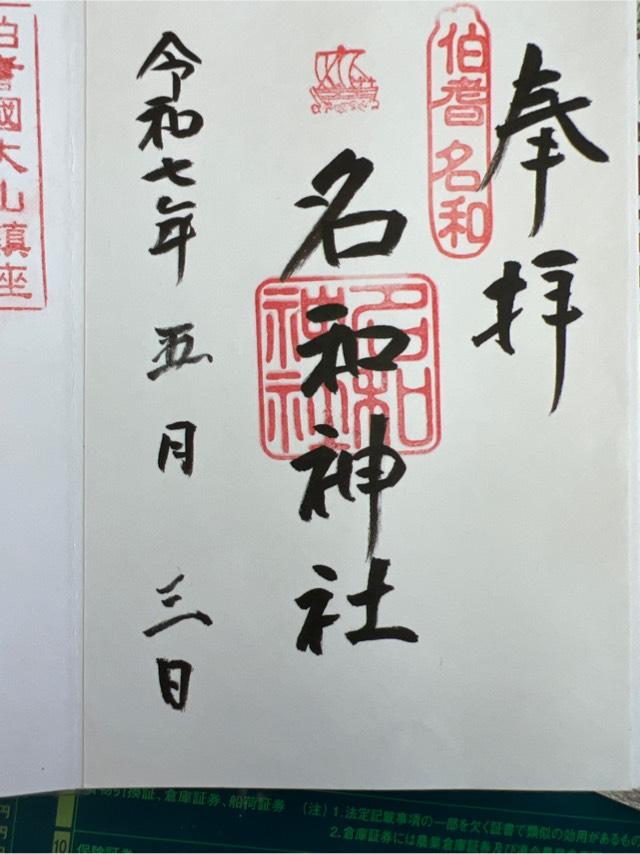 奉拝
伯耆名和
名和神社
名和神社
令和七年五月三日
伯耆國大山鎮座
物引換証、倉庫証券、船荷証券 (注) 1.法定記載事項の一部を欠く証書で類似の効用があるもの
2.倉庫証券には農業倉庫証券及び連合農業
10 保険証券
円
円